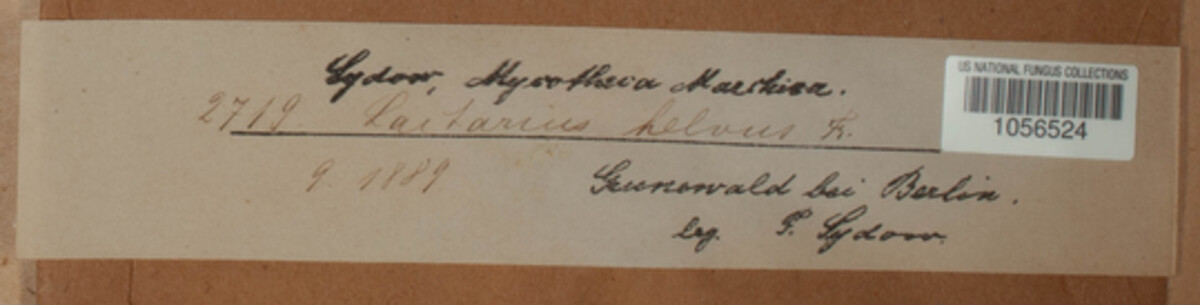 Sydow, Mycotheca Marchica.
2719. Lactarius helvus Fr.
9. 1889
Grunewald bei Berlin.
leg. P. Sydow.
US NATIONAL FUNGUS COLLECTIONS
1056524